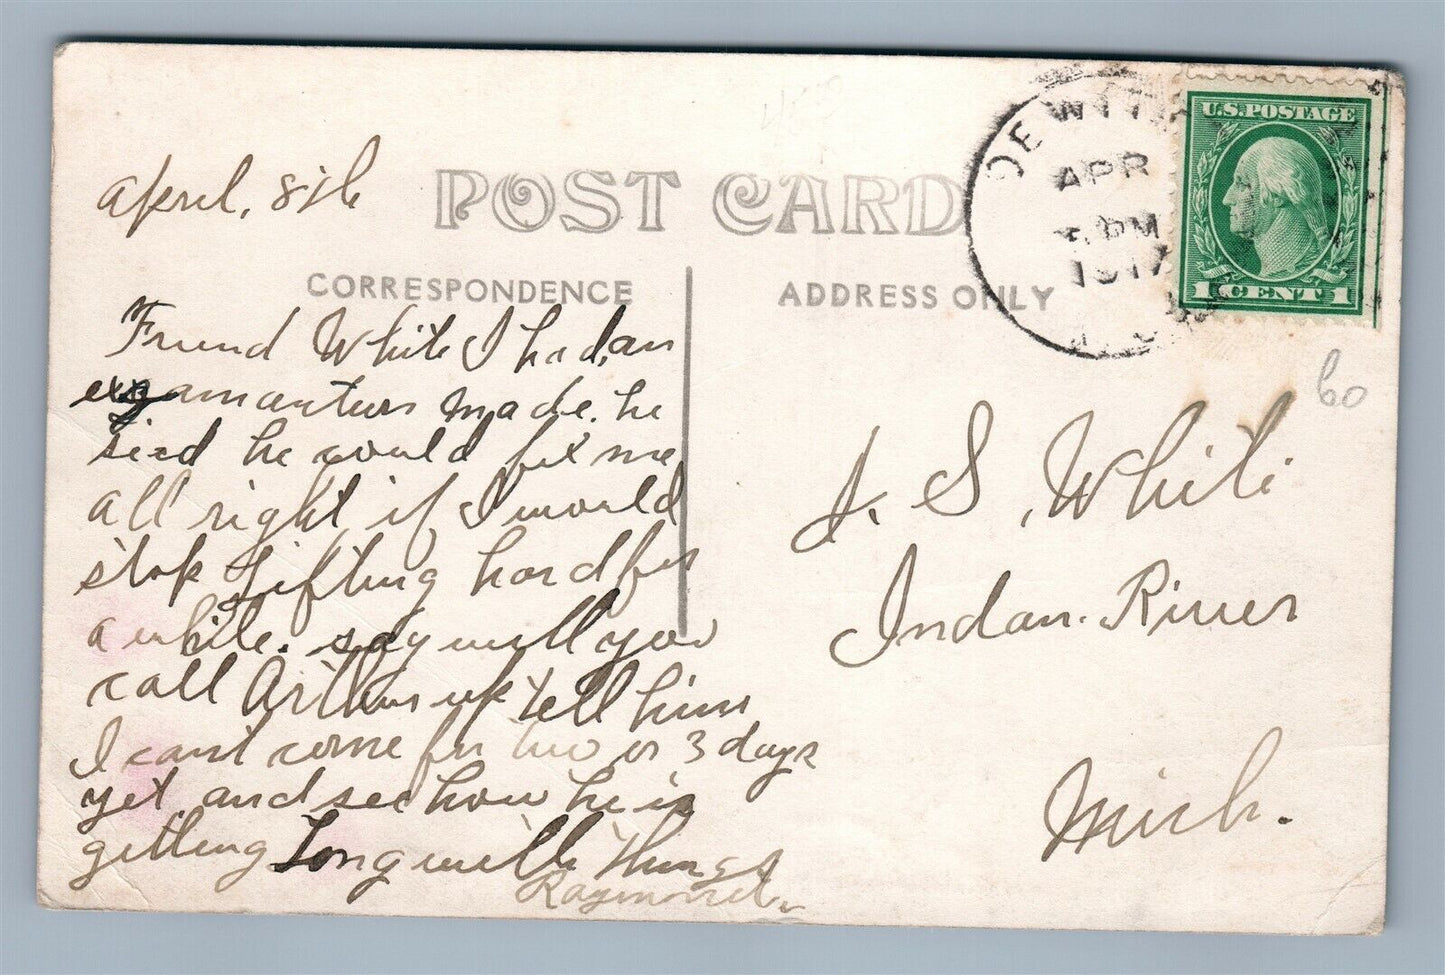 April, 8th
POST CARD
CORRESPONDENCE
ADDRESS ONLY
DEWITT
APR
PM
1917
U.S. POSTAGE
1 CENT 1
60
Friend White I had, an
examantion made. he
sied he could fix me
all right if I would
stop Lifting hard for
a while. say will you
call Arthur up tell him
I cant come for two or 3 days
yet and see how he is
getting Long with Things
Raymond.
J. S. White
Indan. River
Mich.